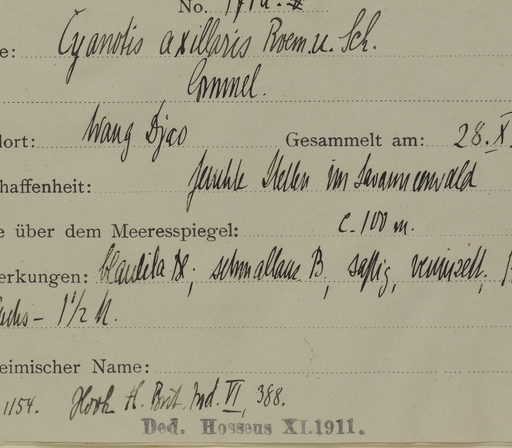 No.
e: Cyanotis axillaris Roem. u. Sch.
Commel.
dort: Wang Djao Gesammelt am: 28. X.
haffenheit: feuchte Stellen im Savannenwald
e über dem Meeresspiegel: c. 100 m.
erkungen: blaulila Bl., schmallanz B, saftig, vereinzelt,
uchs – 1 1/2 M.
eimischer Name:
1154. Hook Fl. Brit. Ind. VI, 388.
Ded. Hosseus XI.1911.